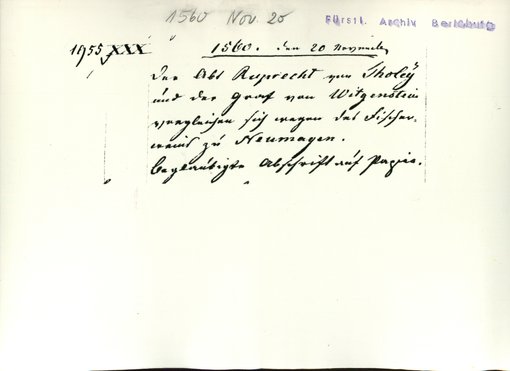 1560 Nov. 20
Fürstl. Archiv Berleburg
1955 XXX
1560. den 20 November
Der Abt Ruprecht von Tholey
und der Graf von Witgenstein
vergleichen sich wegen des Fischer-
weuis zu Neumagen.
Beglaubigte Abschrift auf Papier.